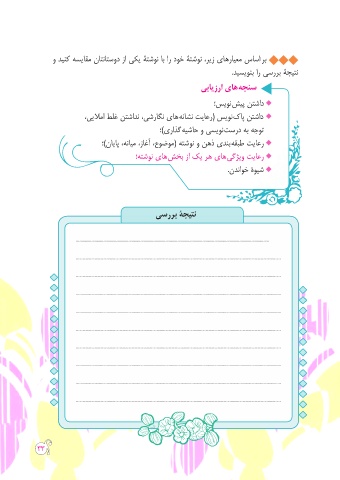 بر اساس معیارهای زیر، نوشتهٔ خود را با نوشتهٔ یکی از دوستانتان مقایسه کنید و
نتیجهٔ بررسی را بنویسید.
سنجه‌های ارزیابی
داشتن پیش‌نویس؛
داشتن پاک‌نویس (رعایت نشانه‌های نگارشی، نداشتن غلط املایی،
توجه به درست‌نویسی و حاشیه‌گذاری)؛
رعایت طبقه‌بندی ذهن و نوشته (موضوع، آغاز، میانه، پایان)؛
رعایت ویژگی‌های هر یک از بخش‌های نوشته؛
شیوهٔ خواندن.
نتیجهٔ بررسی
۳۳